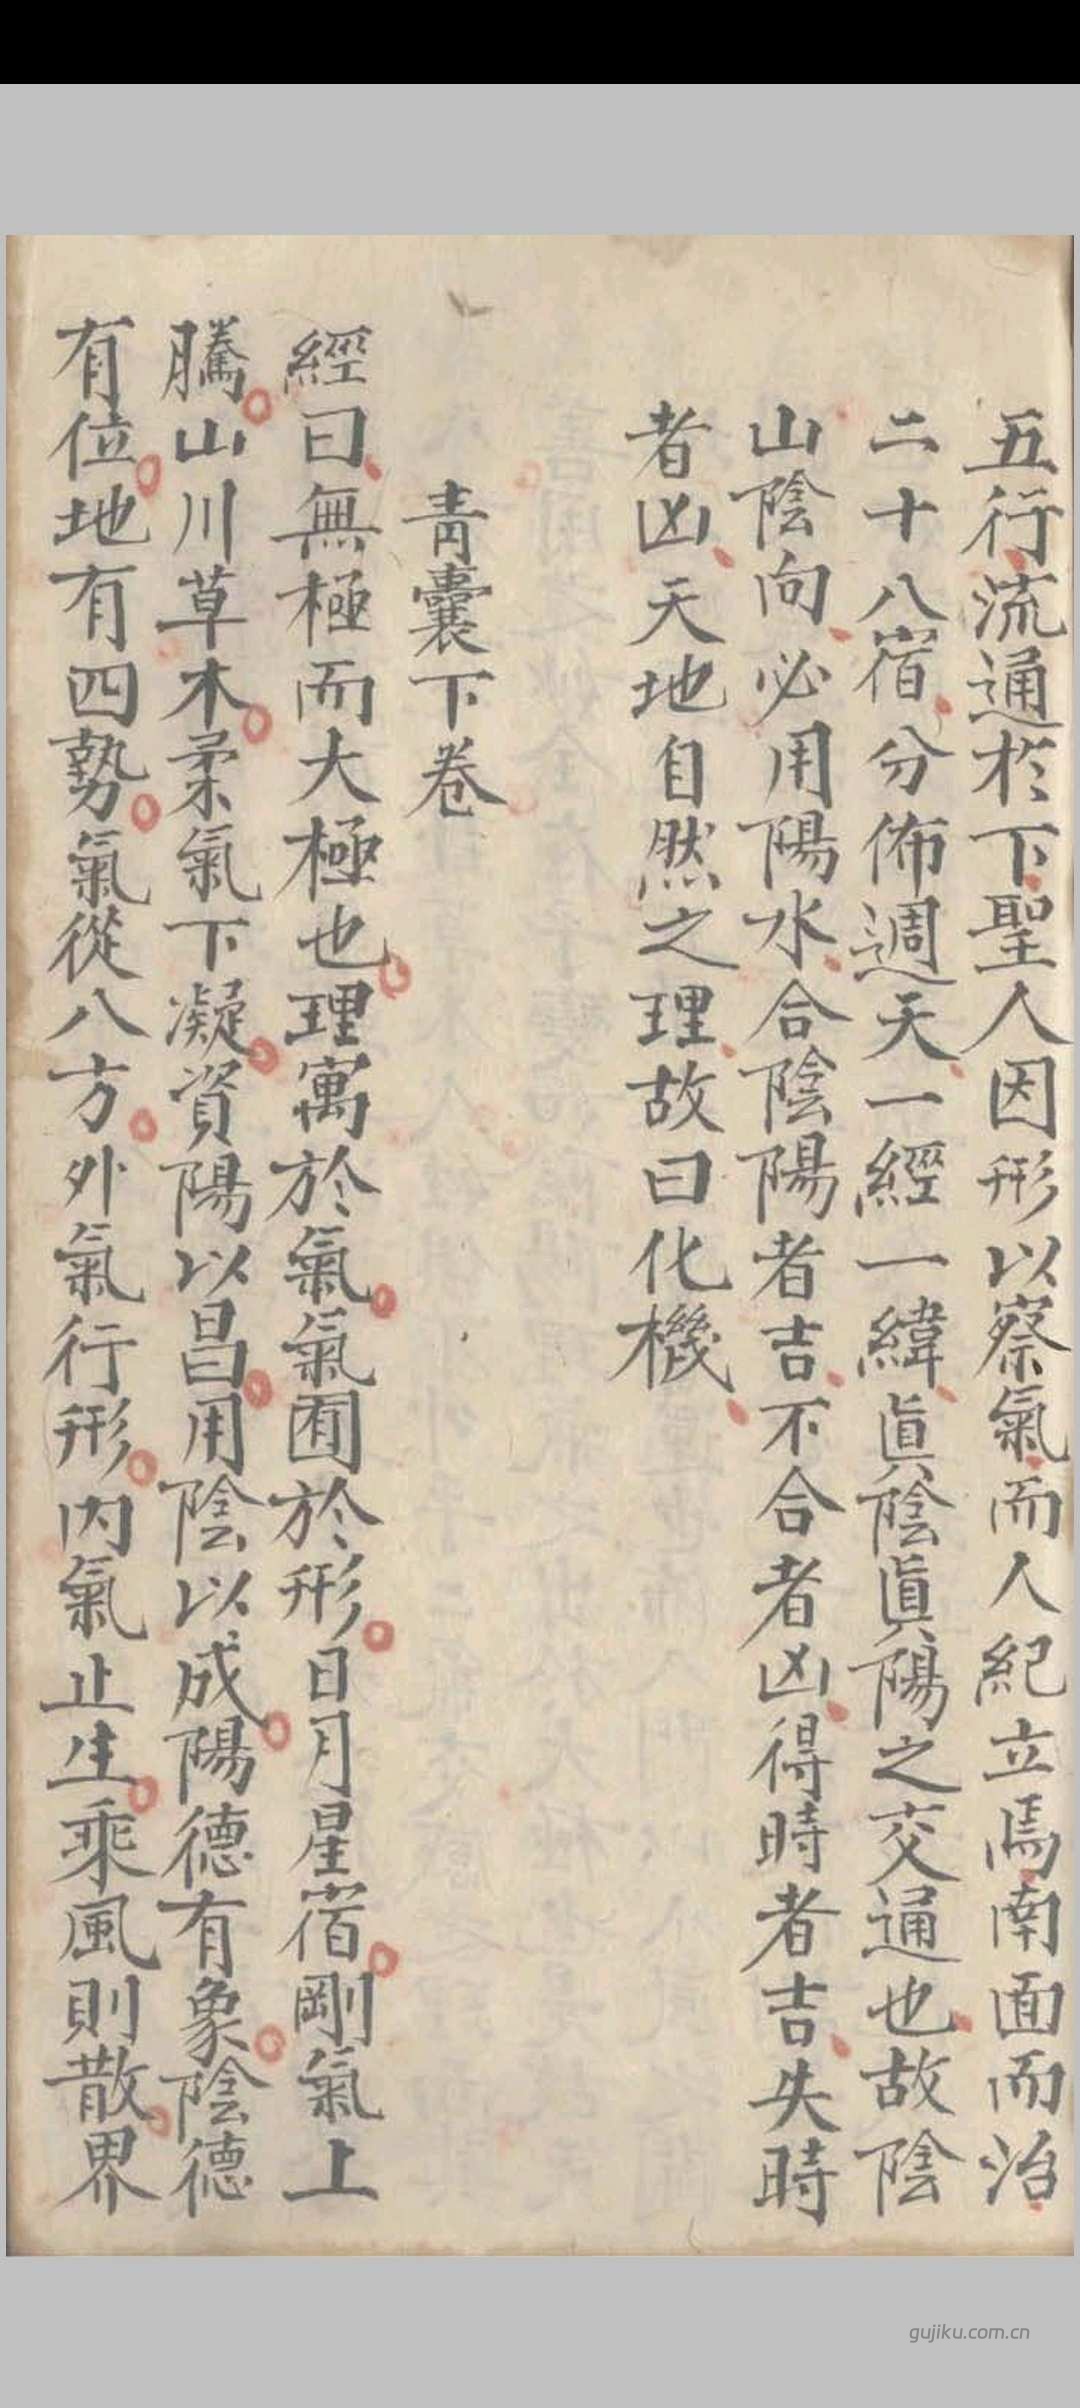 五行流通於下聖人因形以察氣而人紀立焉南面而治
二十八宿分佈週天一經一緯眞陰眞陽之交通也故陰
山陰向必用陽水合陰陽者吉不合者凶得時者吉失時
者凶天地自然之理故曰化機
青囊下卷
經曰無極而大極也理寓於氣氣囿於形日月星宿剛氣上
騰山川草木柔氣下凝資陽以昌用陰以成陽德有象陰德
有位地有四勢氣從八方外氣行形內氣止生乘風則散界
gujiku.com.cn